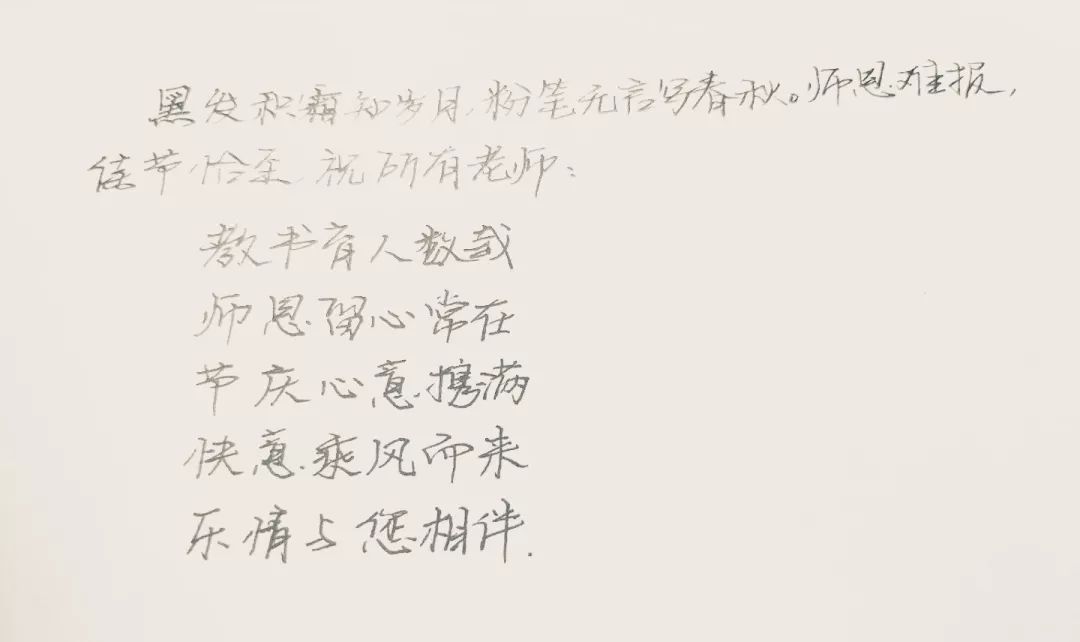 黑发积霜知岁月,粉笔无言写春秋。师恩难报,
佳节恰至,祝所有老师:
教书育人数载
师恩留心常在
节庆心意携满
快意乘风而来
乐情与您相伴.